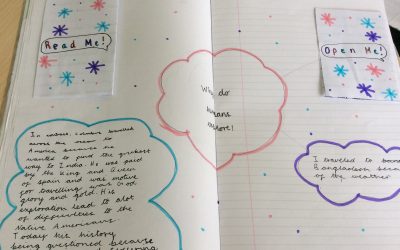 Read Me!
Open Me!
Why do
humans
explore?
In 
travelled
across the ocean to
America because he
wanted to find the quickest
way to India. He was paid
by the King and Queen
of Spain and was motive
for travelling was God
glory and gold. His
exploration lead to alot
of difficulties to the
Native Americans.
Today his history
being questioned because
I traveled to
Bangladesh because
of the weather